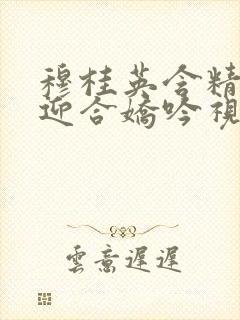 穆桂英含精
迎合嬌吟視
雲意遲遲